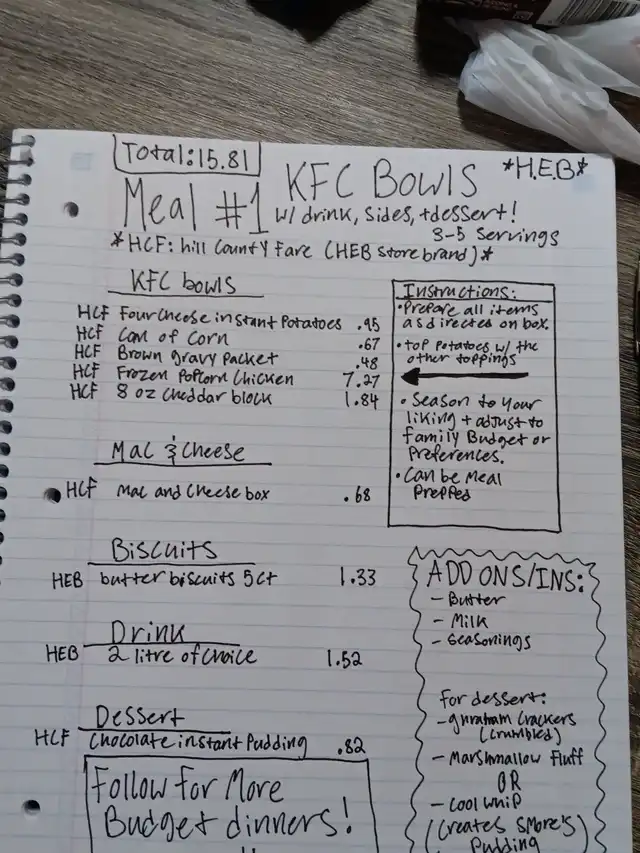 Total: 15.81
Meal #1 KFC Bowls *H.E.B*
w/ drink, sides, + dessert!
3-5 Servings
*HCF: hill County Fare (HEB Store brand)*
KFC bowls
HCF Four Cheese instant Potatoes .95
HCF Can of Corn .67
HCF Brown gravy packet .48
HCF Frozen Popcorn Chicken 7.27
HCF 8 oz Cheddar block 1.84
Mac & Cheese
HCF Mac and Cheese box .68
Biscuits
HEB butter biscuits 5ct 1.33
Drink
HEB 2 litre of choice 1.52
Dessert
HCF Chocolate instant Pudding .82
Follow for More
Budget dinners!
Instructions:
• Prepare all items
as directed on box.
• top potatoes w/ the
other toppings
• Season to your
liking + adjust to
family Budget or
Preferences.
• Can be Meal
Prepped
ADD ONS/INS:
- Butter
- Milk
- Seasonings
for dessert:
- ghraham Crackers
(crumbled)
- Marshmallow Fluff
OR
- Cool Whip
(Creates Smore's
Pudding